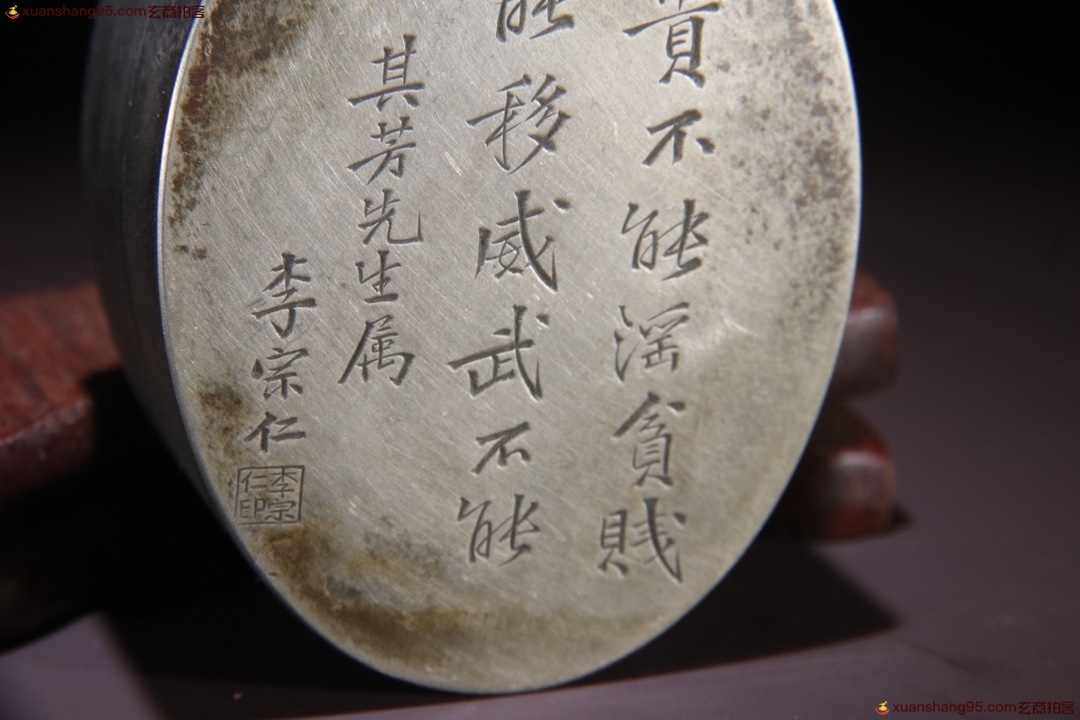 xuanshang95.com玄商拍客
貴不能淫貧賤
能移威武不能
其芳先生属
李宗仁
李宗仁印
xuanshang95.com玄商拍客